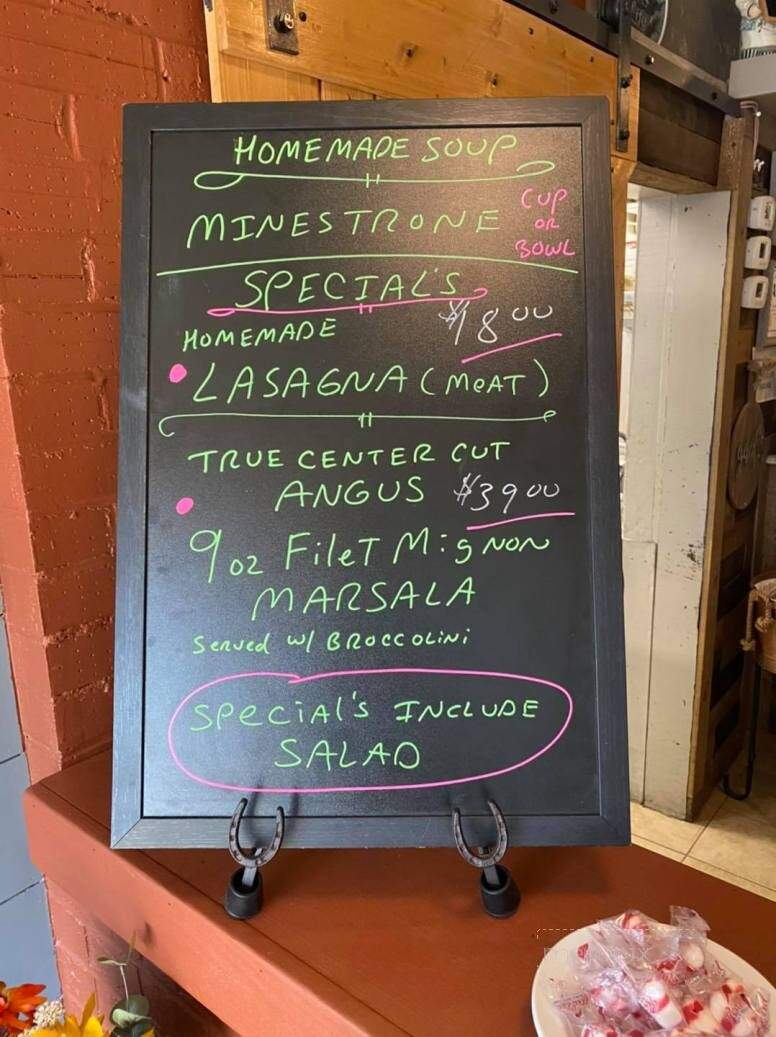 HOMEMADE SOUP
MINESTRONE
CUP
OR
BOWL
SPECIAL'S
HOMEMADE $18.00
LASAGNA (MeAT)
TRUE CENTER CUT
ANGUS $39.00
9oz FileT MigNON
MARSALA
Served w/ BROCCOLiNi
SPeciAl's INCLUDE
SALAD